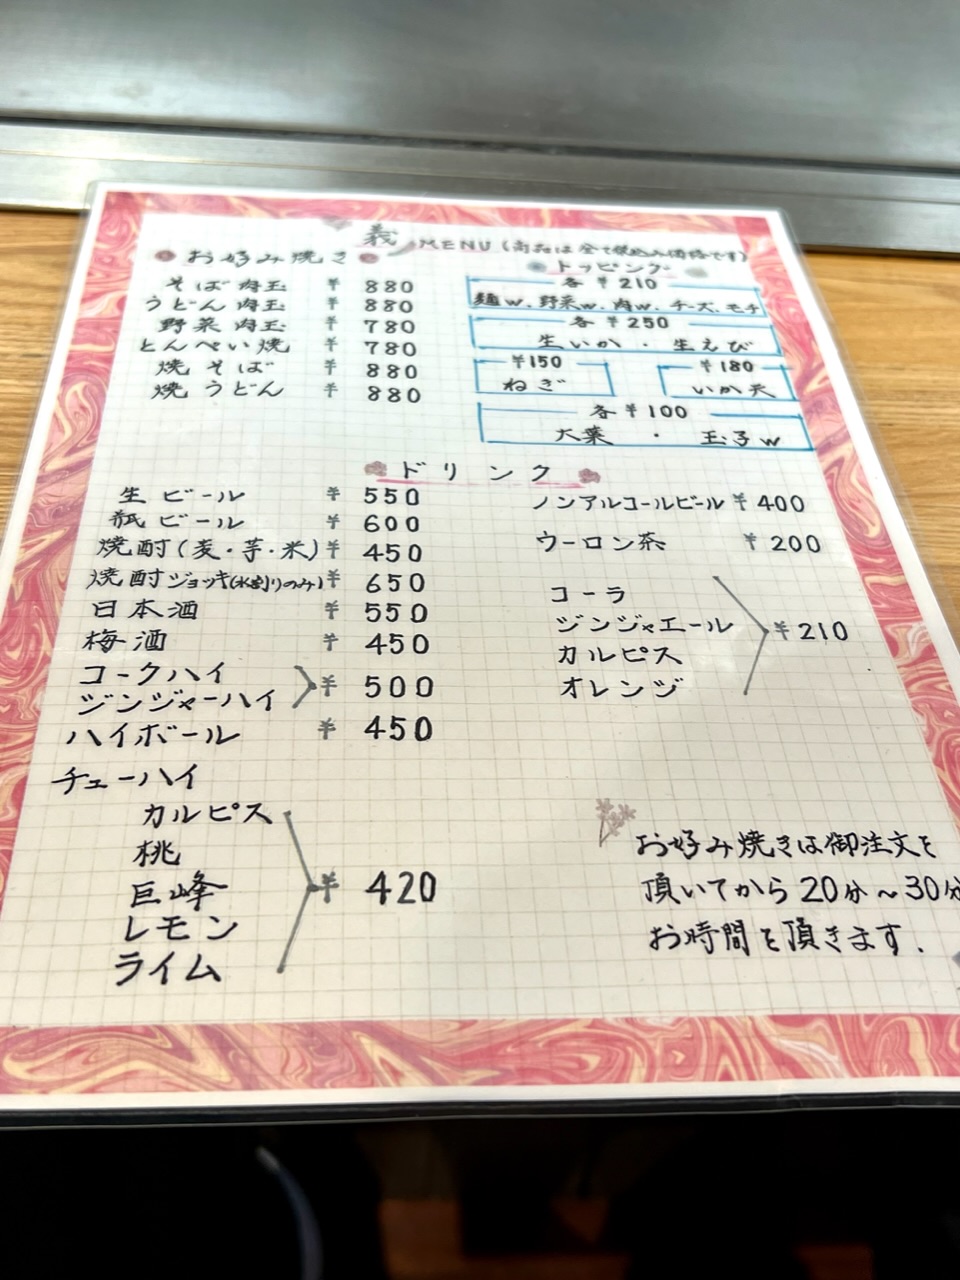 義 MENU (商品は全て税込み価格です)
お好み焼き
そば肉玉 ¥ 880
うどん肉玉 ¥ 880
野菜肉玉 ¥ 780
とんぺい焼 ¥ 780
焼そば ¥ 880
焼うどん ¥ 880
トッピング
各 ¥ 210
麺w.野菜w.肉w.チーズ.モチ
各 ¥250
生いか ・ 生えび
¥150
ねぎ
¥180
いか天
各 ¥100
大葉 ・ 玉子w
ドリンク
生ビール ¥ 550
瓶ビール ¥ 600
焼酎(麦・芋・米) ¥ 450
焼酎ジョッキ(水割りのみ) ¥ 650
日本酒 ¥ 550
梅酒 ¥ 450
コークハイ
ジンジャーハイ
¥ 500
ハイボール ¥ 450
チューハイ
カルピス
桃
巨峰
レモン
ライム
¥ 420
ノンアルコールビール ¥ 400
ウーロン茶 ¥ 200
コーラ
ジンジャエール
カルピス
オレンジ
¥210
お好み焼きは御注文を
頂いてから20分~30分
お時間を頂きます.